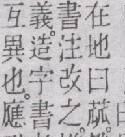 在地曰蓏
書注改之
義造字書
互異也。應